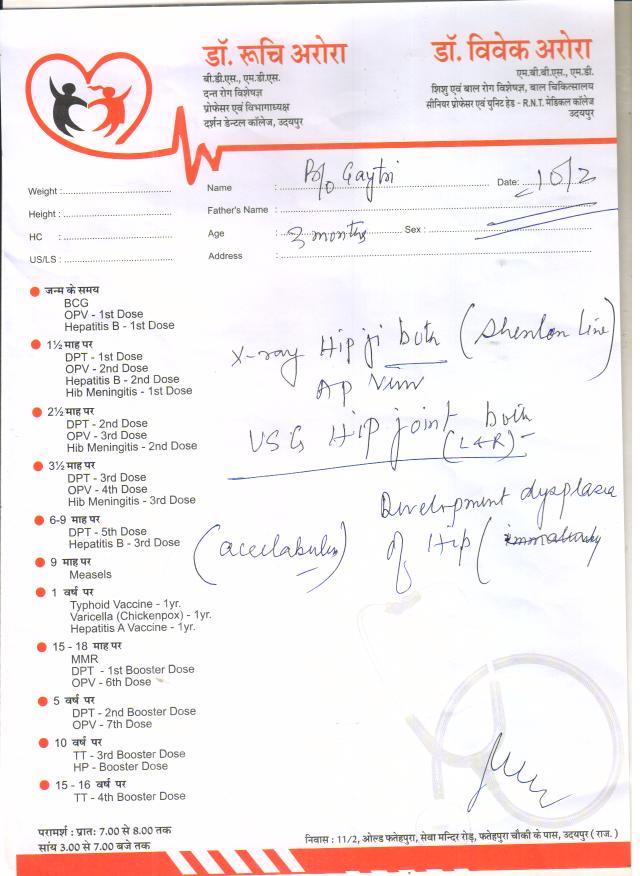 डॉ. रूचि अरोरा
बी.डी.एस., एम.डी.एस.
दन्त रोग विशेषज्ञ
प्रोफेसर एवं विभागाध्यक्ष
दर्शन डेन्टल कॉलेज, उदयपुर
डॉ. विवेक अरोरा
एम.बी.बी.एस., एम.डी.
शिशु एवं बाल रोग विशेषज्ञ, बाल चिकित्सालय
सीनियर प्रोफेसर एवं युनिट हेड - R.N.T. मेडिकल कॉलेज
उदयपुर
Weight : Name : B/o Gaytri Date: 10/2
Height : Father's Name :
HC : Age : 3 months Sex :
US/LS : Address :
जन्म के समय
BCG
OPV - 1st Dose
Hepatitis B - 1st Dose
1½ माह पर
DPT - 1st Dose
OPV - 2nd Dose
Hepatitis B - 2nd Dose
Hib Meningitis - 1st Dose
2½ माह पर
DPT - 2nd Dose
OPV - 3rd Dose
Hib Meningitis - 2nd Dose
3½ माह पर
DPT - 3rd Dose
OPV - 4th Dose
Hib Meningitis - 3rd Dose
6-9 माह पर
DPT - 5th Dose
Hepatitis B - 3rd Dose
9 माह पर
Measels
1 वर्ष पर
Typhoid Vaccine - 1yr.
Varicella (Chickenpox) - 1yr.
Hepatitis A Vaccine - 1yr.
15 - 18 माह पर
MMR
DPT - 1st Booster Dose
OPV - 6th Dose
5 वर्ष पर
DPT - 2nd Booster Dose
OPV - 7th Dose
10 वर्ष पर
TT - 3rd Booster Dose
HP - Booster Dose
15 - 16 वर्ष पर
TT - 4th Booster Dose
X-ray Hip jt both (Shenton Line)
AP View
USG Hip joint both
(L&R) -
Development dysplasia
of Hip (
(acetabulum)
परामर्श : प्रातः 7.00 से 8.00 तक
सांय 3.00 से 7.00 बजे तक
निवास : 11/2, ओल्ड फतेहपुरा, सेवा मन्दिर रोड़, फतेहपुरा चौकी के पास, उदयपुर ( राज. )